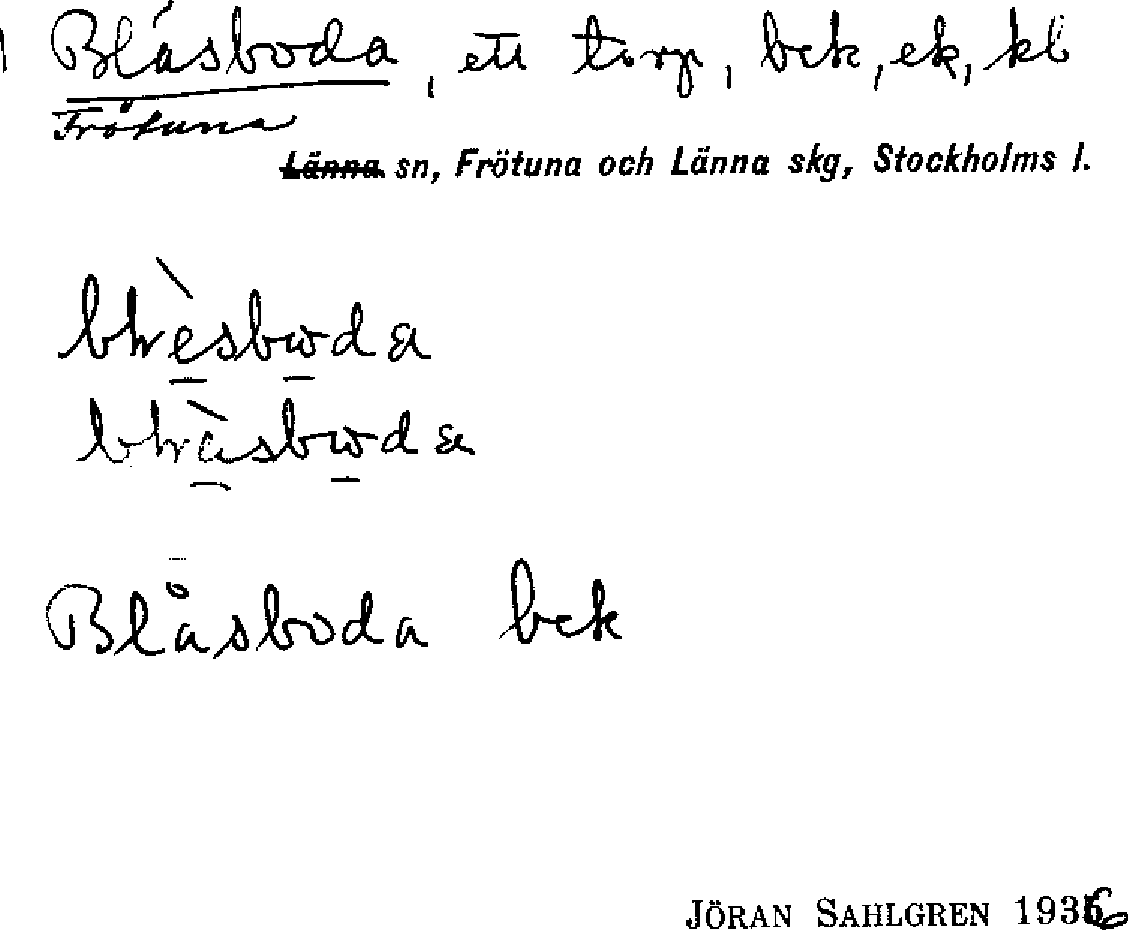 Blåsboda, ett torp, bck, ek, kb
Frötuna
Länna sn, Frötuna och Länna skg, Stockholms l.
Blåsboda bck
JÖRAN SAHLGREN 1936